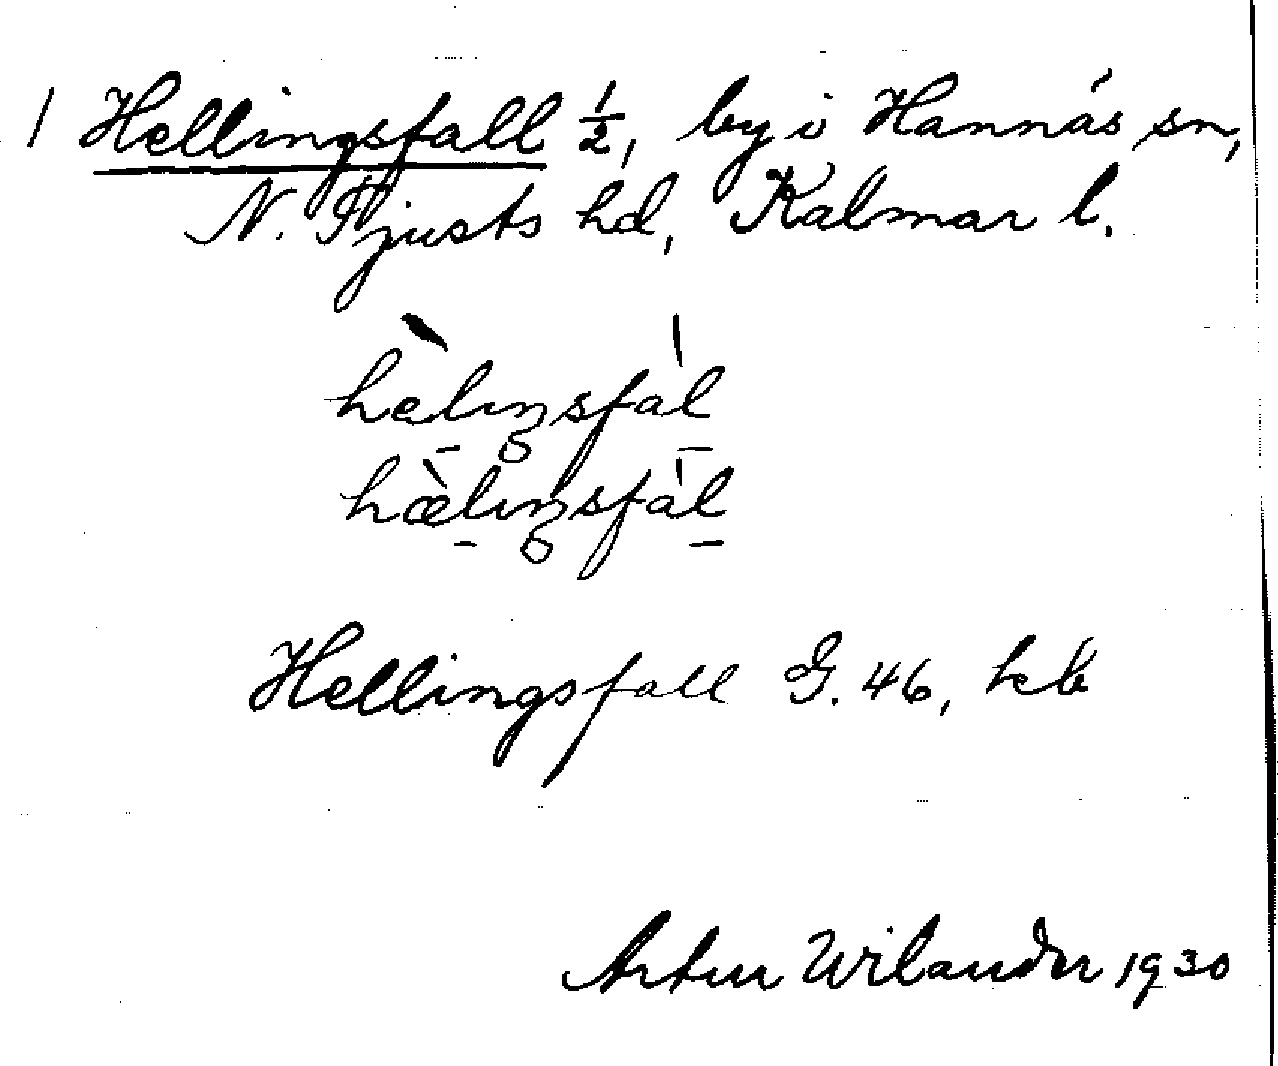 1 Hellingsfall ½, by i Hannäs sn,
N. Tjusts hd, Kalmar l.
hèlıŋsfàl
hæ̀lıŋsfàl
Hellingsfall G. 46, kb
Artur Wilander 1930